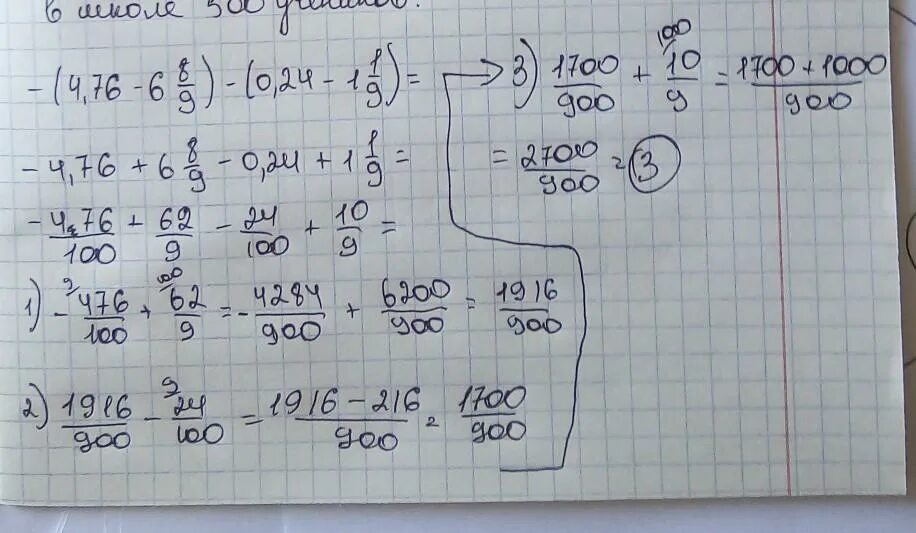 в школе 500 учеников.
-(4,76 - 6 8/9) - (0,24 - 1 1/9) =
-4,76 + 6 8/9 - 0,24 + 1 1/9 =
-476/100 + 62/9 - 24/100 + 10/9 =
1) -476/100 (9) + 62/9 (100) = -4284/900 + 6200/900 = 1916/900
2) 1916/900 - 24/100 (9) = (1916 - 216)/900 = 1700/900
3) 1700/900 + 10/9 (100) = (1700 + 1000)/900
= 2700/900 = 3